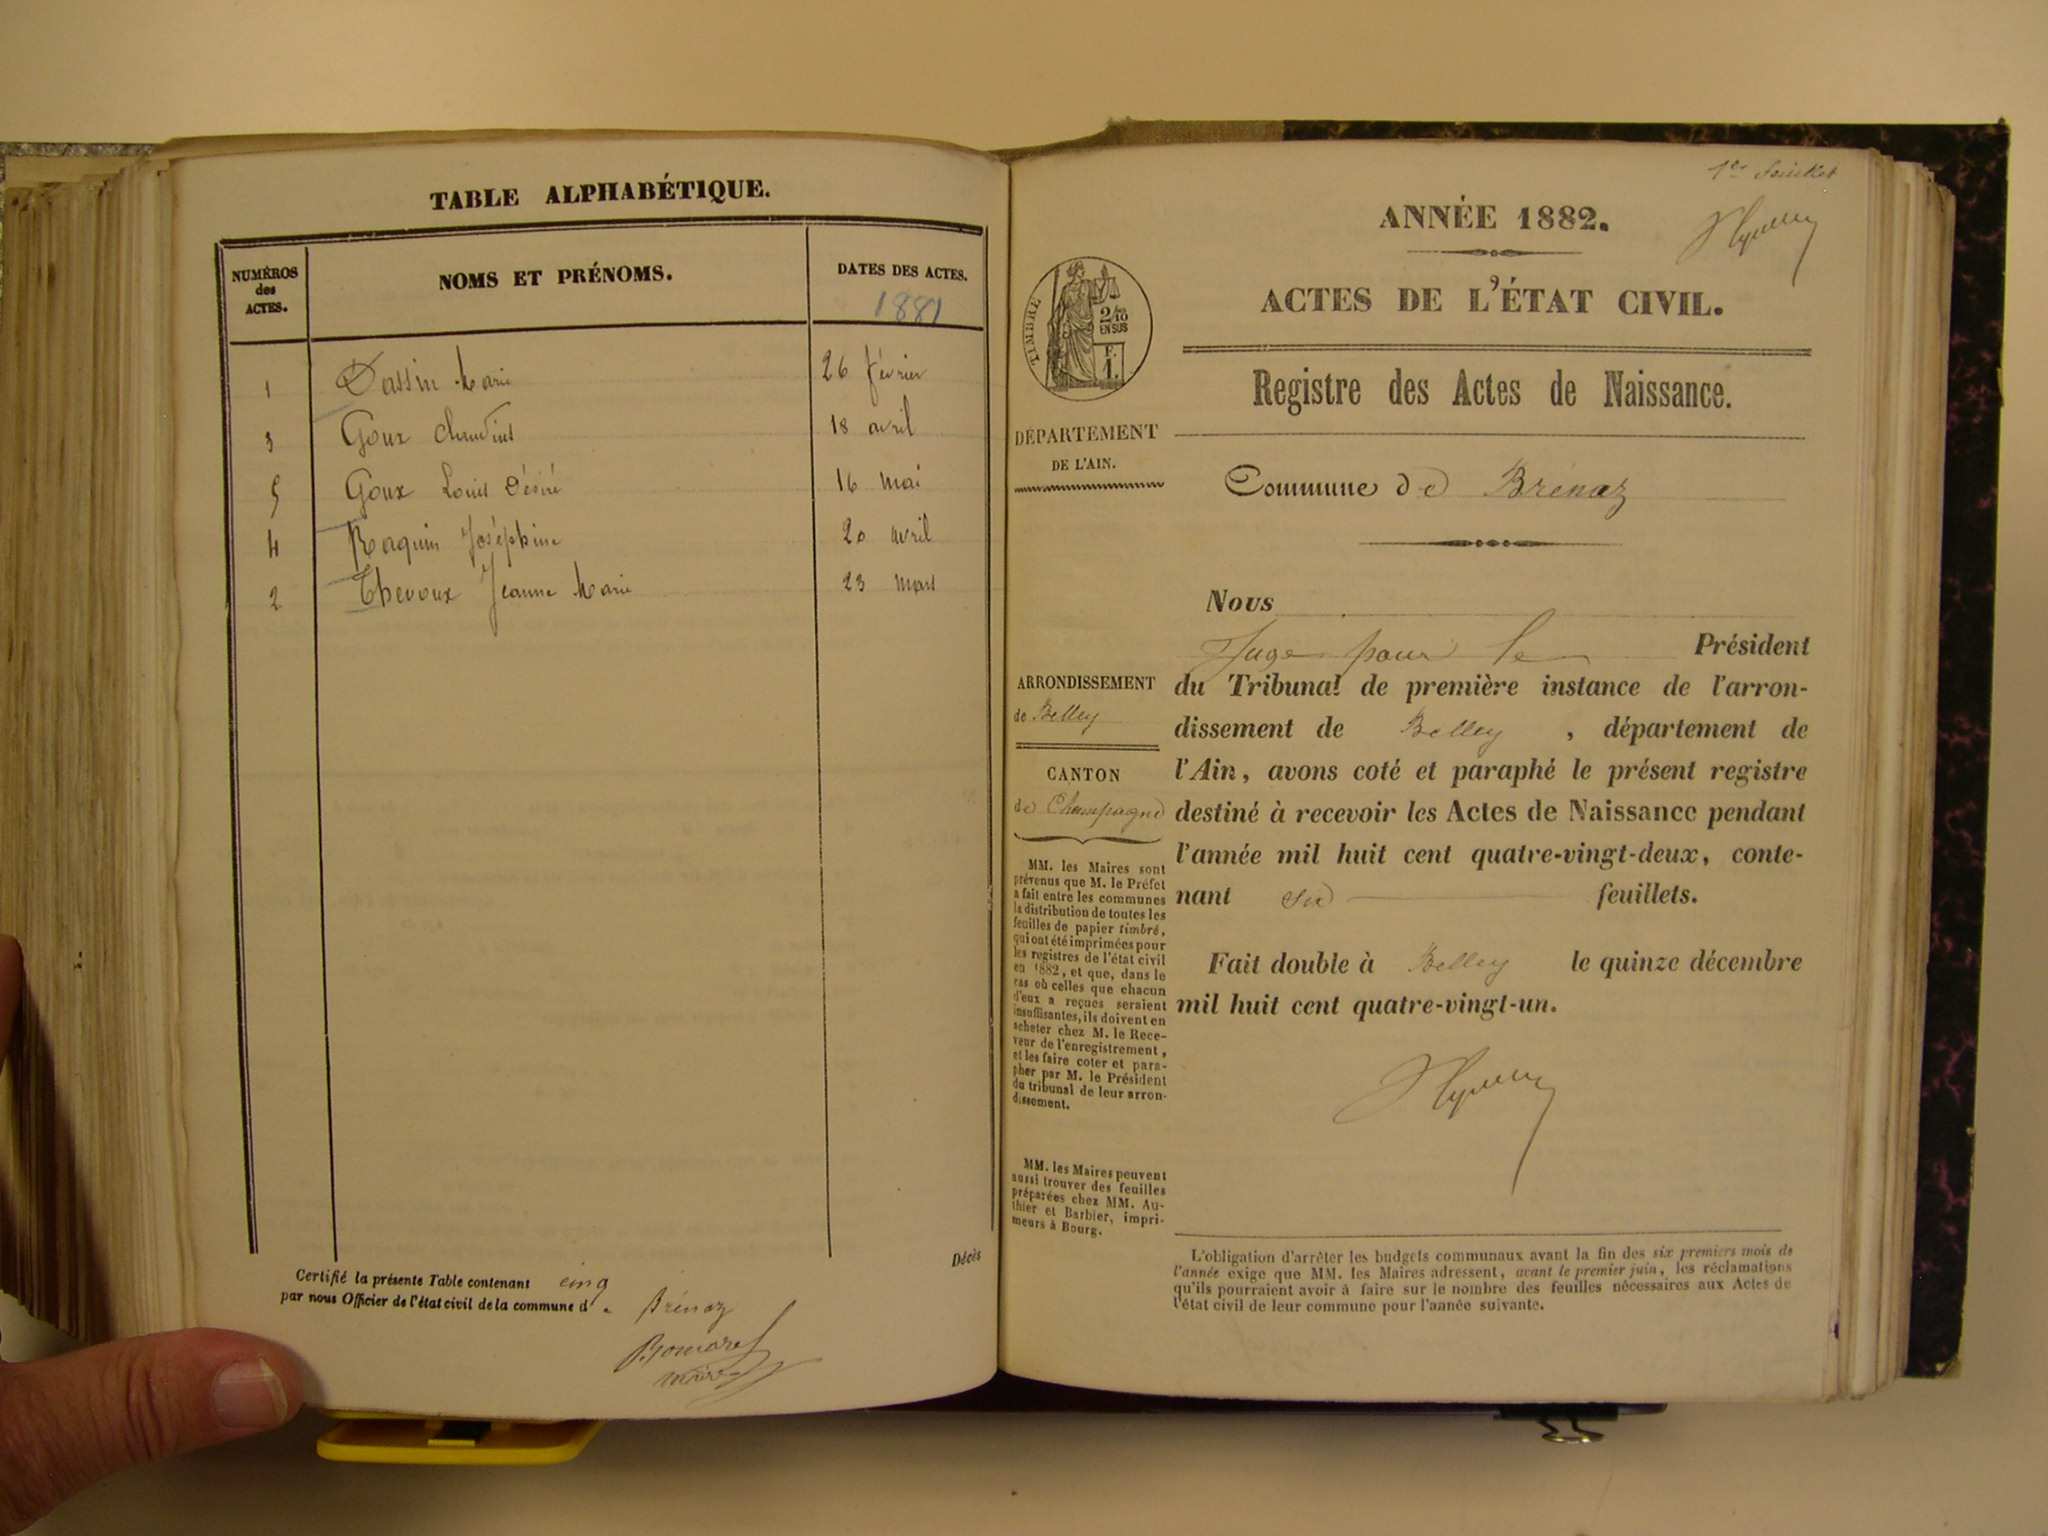 TABLE ALPHABÉTIQUE.
NUMÉROS des ACTES.
NOMS ET PRÉNOMS.
DATES DES ACTES.
1881
1 Dassin Marie 26 février
3 Goux Claudius 18 avril
5 Goux Louis Désiré 16 mai
4 Raquin Joséphine 20 avril
2 Thevoux Jeanne Marie 23 mars
Décès
Certifié la présente Table contenant cinq
par nous Officier de l'état civil de la commune de Brénaz
maire
1er feuillet
ANNÉE 1882.
ACTES DE L'ÉTAT CIVIL.
TIMBRE
2/10
EN SUS
F.
1.
Registre des Actes de Naissance.
DÉPARTEMENT
DE L'AIN.
Commune de Brénaz
ARRONDISSEMENT
de Belley
CANTON
de Champagne
MM. les Maires sont
prévenus que M. le Préfet
a fait entre les communes
la distribution de toutes les
feuilles de papier timbré,
qui ont été imprimées pour
les registres de l'état civil
en 1882, et que, dans le
cas où celles que chacun
d'eux a reçues seraient
insuffisantes, ils doivent en
acheter chez M. le Rece-
veur de l'enregistrement,
et les faire coter et para-
pher par M. le Président
du tribunal de leur arron-
dissement.
MM. les Maires peuvent
aussi trouver des feuilles
préparées chez MM. Au-
thier et Barbier, impri-
meurs à Bourg.
Nous
Juge pour le Président
du Tribunal de première instance de l'arron-
dissement de Belley, département de
l'Ain, avons coté et paraphé le présent registre
destiné à recevoir les Actes de Naissance pendant
l'année mil huit cent quatre-vingt-deux, conte-
nant six feuillets.
Fait double à Belley le quinze décembre
mil huit cent quatre-vingt-un.
L'obligation d'arrêter les budgets communaux avant la fin des six premiers mois de
l'année exige que MM. les Maires adressent, avant le premier juin, les réclamations
qu'ils pourraient avoir à faire sur le nombre des feuilles nécessaires aux Actes de
l'état civil de leur commune pour l'année suivante.